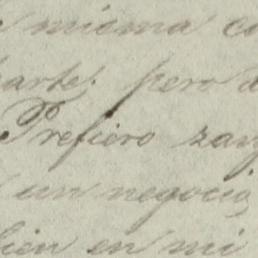 misma
parte; pero
Prefiero
un negocio,
bien en mi